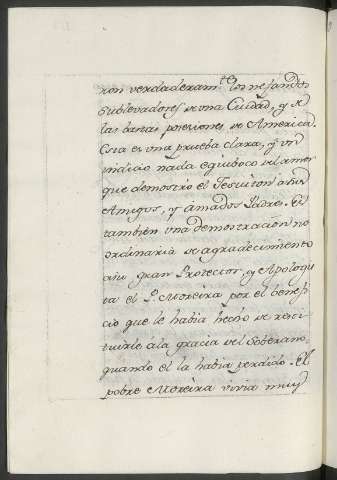 ron verdaderam.te los nefandos
sublevadores de una Ciudad, y de
las bastas posesiones de America.
Esta es una prueba clara, y un
indicio nada equiboco del amor
que demostró el Jesuiton a sus
Amigos, y amados Padres. Es
tambien una demostracion no
ordinaria de agradecimiento
a su gran Protector, y Apologis
ta el P.e Moreira por el benefi
cio que le habia hecho de resti
tuirle a la gracia del Soberano,
quando el la habia perdido. El
pobre Moreira vivia muy